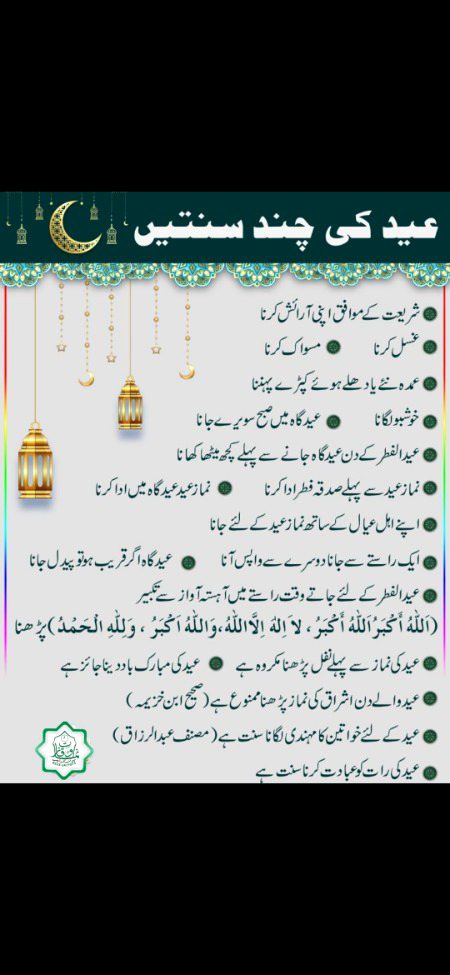 عید کی چند سنتیں
شریعت کے موافق اپنی آرائش کرنا
غسل کرنا مسواک کرنا
عمدہ نئے یا دھلے ہوئے کپڑے پہننا
خوشبو لگانا عیدگاہ میں صبح سویرے جانا
عید الفطر کے دن عیدگاہ جانے سے پہلے کچھ میٹھا کھانا
نماز عید سے پہلے صدقہ فطر ادا کرنا نماز عید عیدگاہ میں ادا کرنا
اپنے اہل عیال کے ساتھ نماز عید کے لئے جانا
ایک راستے سے جانا دوسرے سے واپس آنا عیدگاہ اگر قریب ہو تو پیدل جانا
عید الفطر کے لئے جاتے وقت راستے میں آہستہ آواز سے تکبیر
(اَللهُ أَكْبَرُ اَللهُ أَكْبَرُ ، لَا اِلٰهَ اِلَّا اللهُ، وَاللهُ اَكْبَرُ ، وَلِلّٰهِ الْحَمْدُ) پڑھنا
عید کی نماز سے پہلے نفل پڑھنا مکروہ ہے عید کی مبارک باد دینا جائز ہے
عید والے دن اشراق کی نماز پڑھنا ممنوع ہے (صحیح ابن خزیمہ)
عید کے لئے خواتین کا مہندی لگانا سنت ہے (مصنف عبد الرزاق)
عید کی رات کو عبادت کرنا سنت ہے